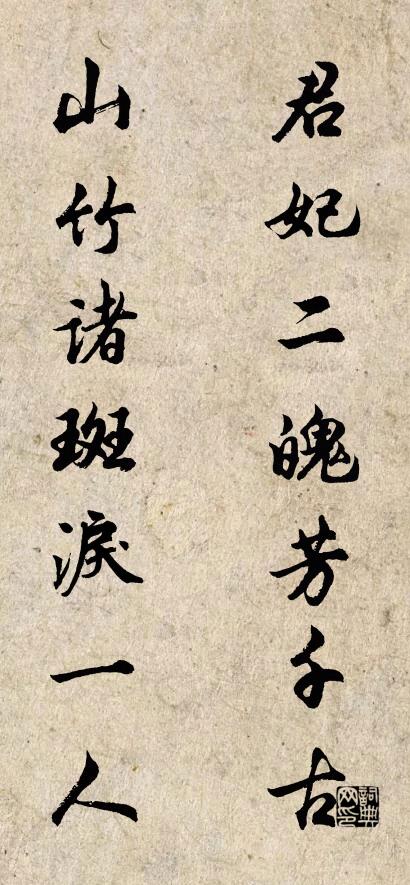 君妃二魄芳千古
山竹诸斑淚一人
詞典网印